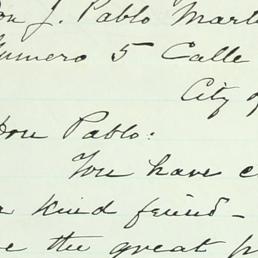 Don J. Pablo Mart
Numero 5 Calle
City of
Don Pablo:
You have
a kind friend-
the great